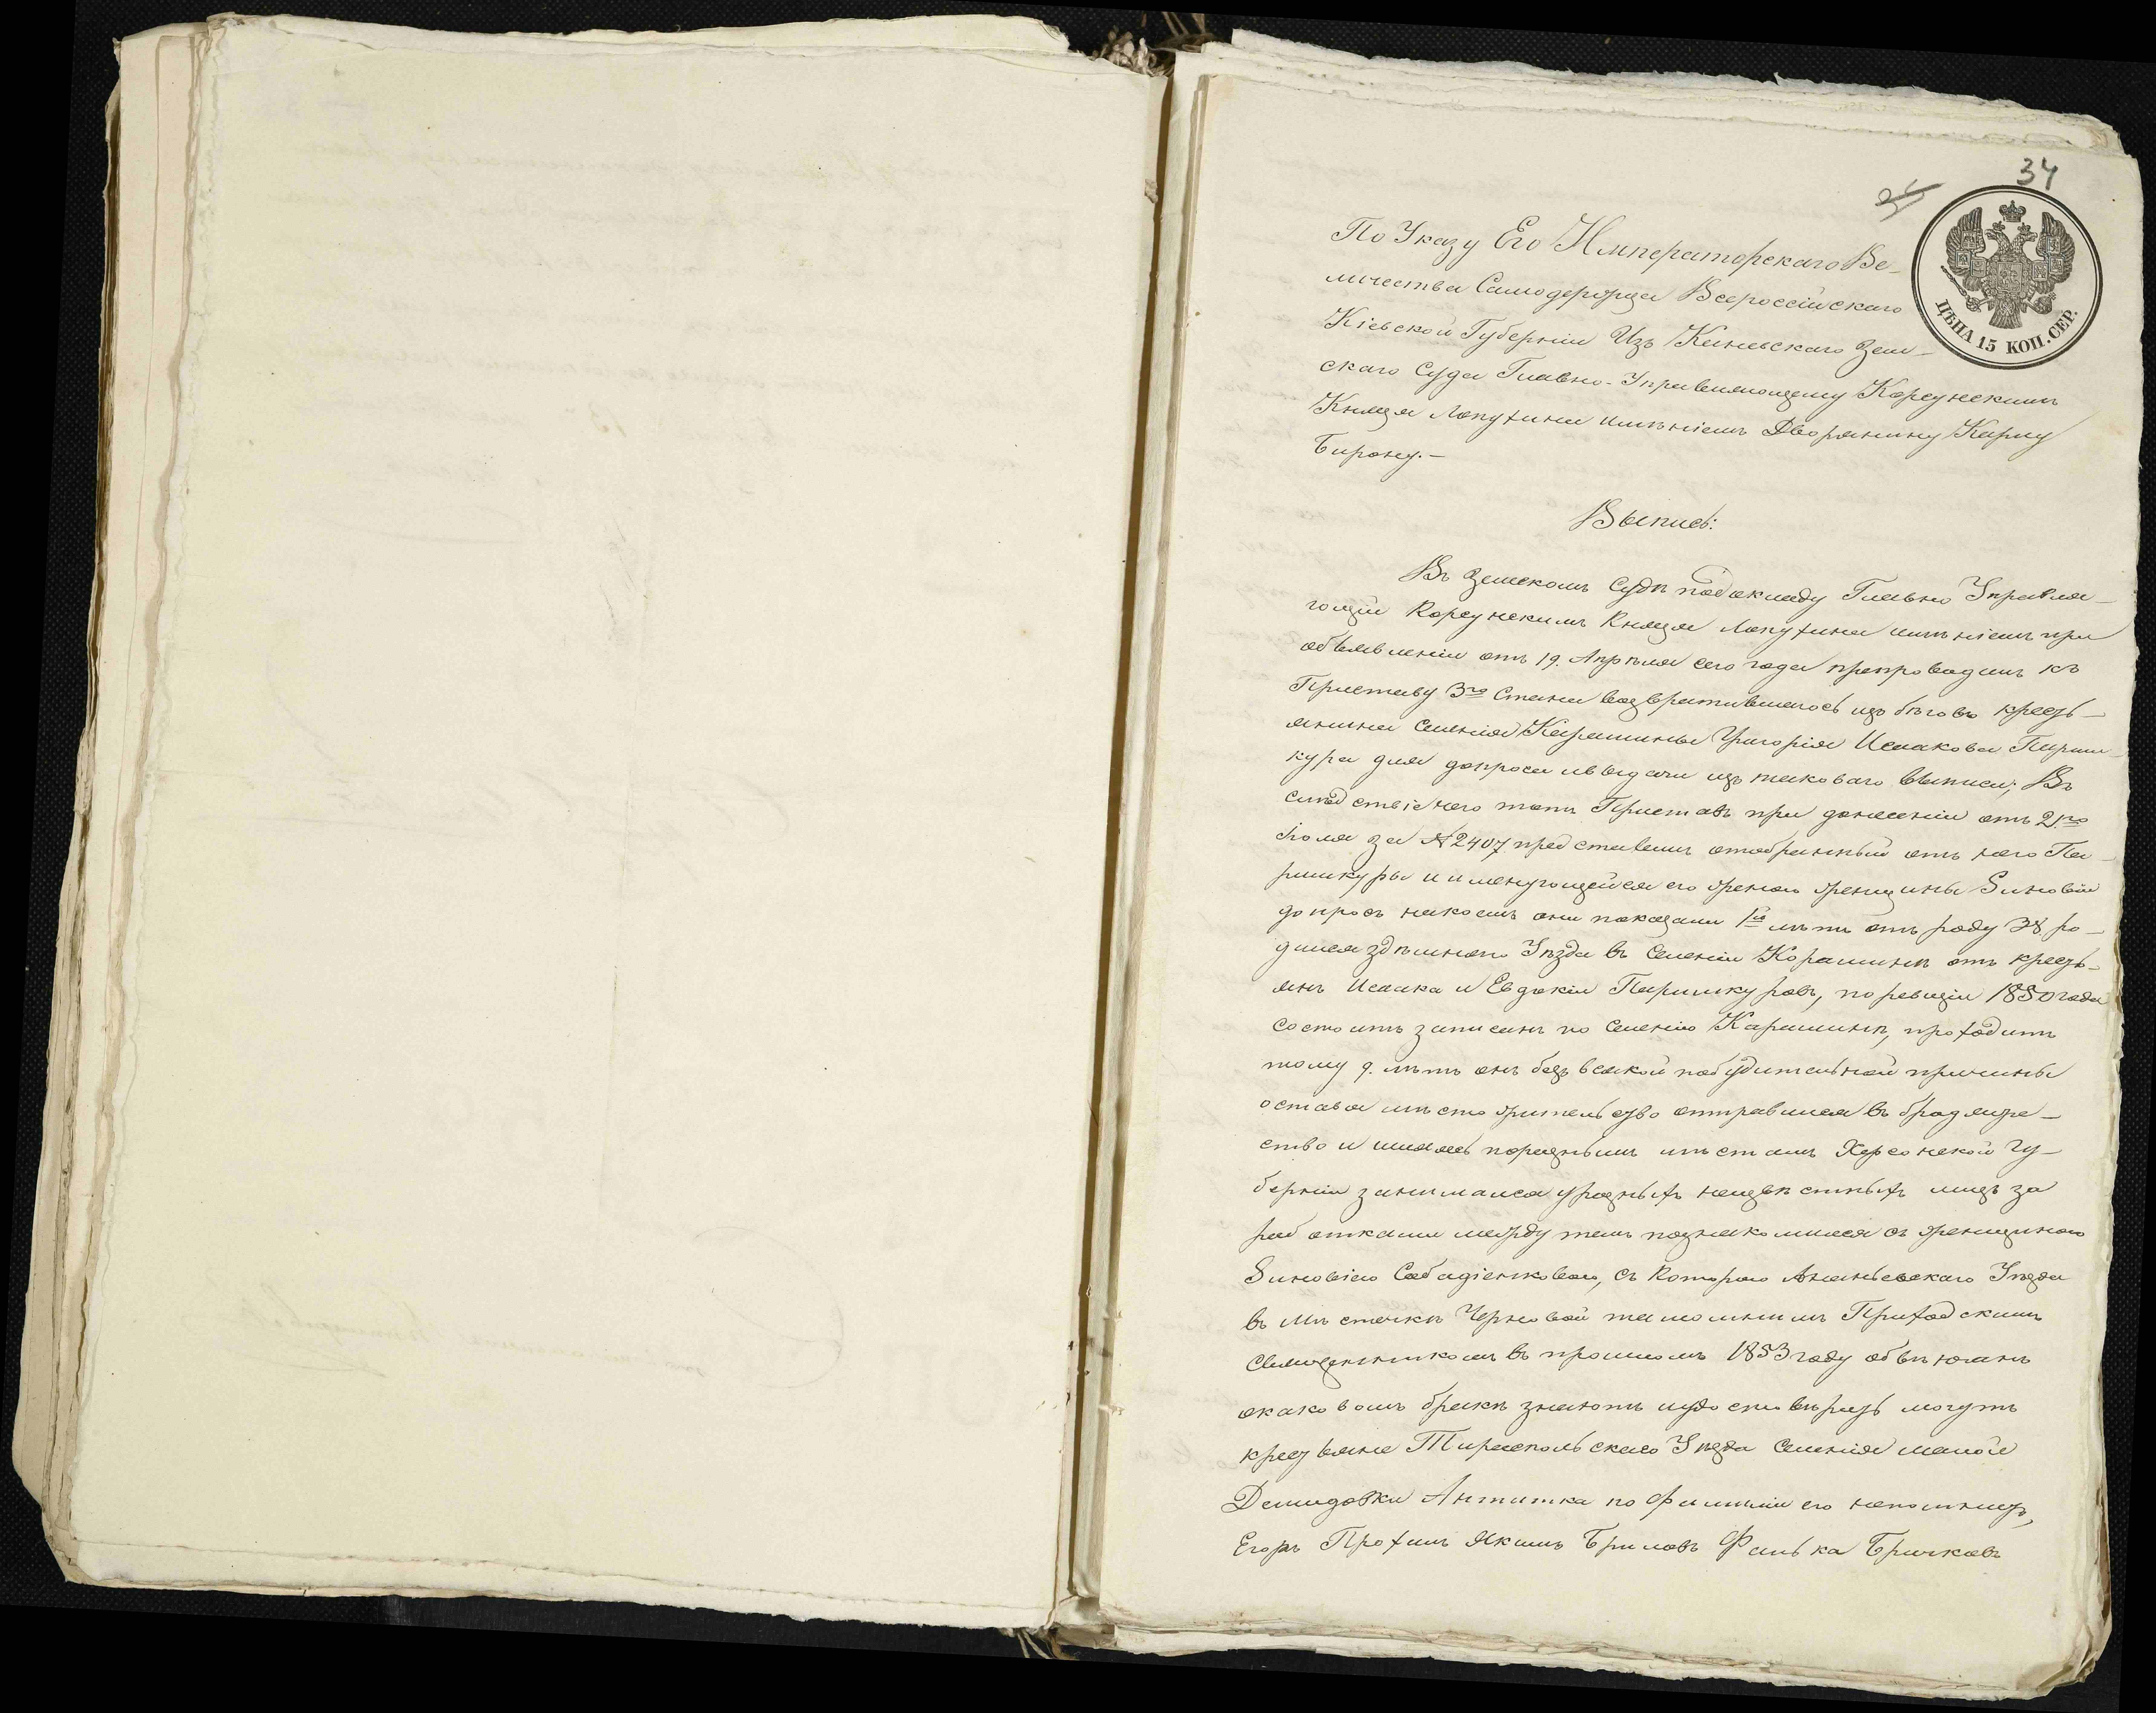 34
35
ЦѢНА 15 КОП. СЕР.
По Указу Его Императорскаго Ве-
личества Самодержца Всероссійскаго
Кіевской Губерніи Изъ Каневскаго Зем-
скаго Суда Главно-Управляющему Корсунскимъ
Князя Лопухина имѣніемъ Дворянину Карлу
Бирону.-
Выпись:
Въ Земскомъ Судѣ по докладу Главно Управля-
ющій Корсунскимъ Князя Лопухина имѣніемъ при
объявленіи отъ 19. Апрѣля сего года препроводилъ къ
Приставу 3го Стана возвратившагось изъ бѣговъ кресть-
янина селенія Карашины Григорія Исакова Парши-
кура для допроса и выдачи изъ таковаго выписи; Въ
слѣдствіе чего тотъ Приставъ при донесеніи отъ 2го
Іюля за № 2407 представилъ отобранный отъ него Па-
ршикуры и именующейся его женою женщины Зиновіи
допросъ накоемъ они показали 1й лѣтъ отъ роду 38 ро-
дился здѣшняго Уѣзда въ селеніи Корашинѣ отъ кресть-
янъ Исака и Евдокіи Паршикуровъ, по ревизіи 1850 года
состоитъ записанъ по селенію Карашинѣ, проходитъ
тому 9. лѣтъ онъ безъ всякой побудительной причины
оставя мѣсто жительство отправился въ бродяже-
ство и шляясь поразнымъ мѣстамъ Херсонской Гу-
берніи занимался уразныхъ неизвѣстныхъ лицъ за
работками между темъ познакомился съ женщиною
Зиновіею, съ которою Ананьевскаго Уѣзда
въ мѣстечкѣ Черновой тамошнимъ Приходскимъ
Священникомъ въ прошломъ 1853 году обвѣнчанъ
окаковомъ бракѣ знаютъ иудостовѣрить могутъ
крестьяне Тираспольскаго Уѣзда селенія малой
Демидовки Антипка по фамиліи его непомнитъ,
Егоръ Прохимъ Якимъ Бриловъ Фалька Бричковъ